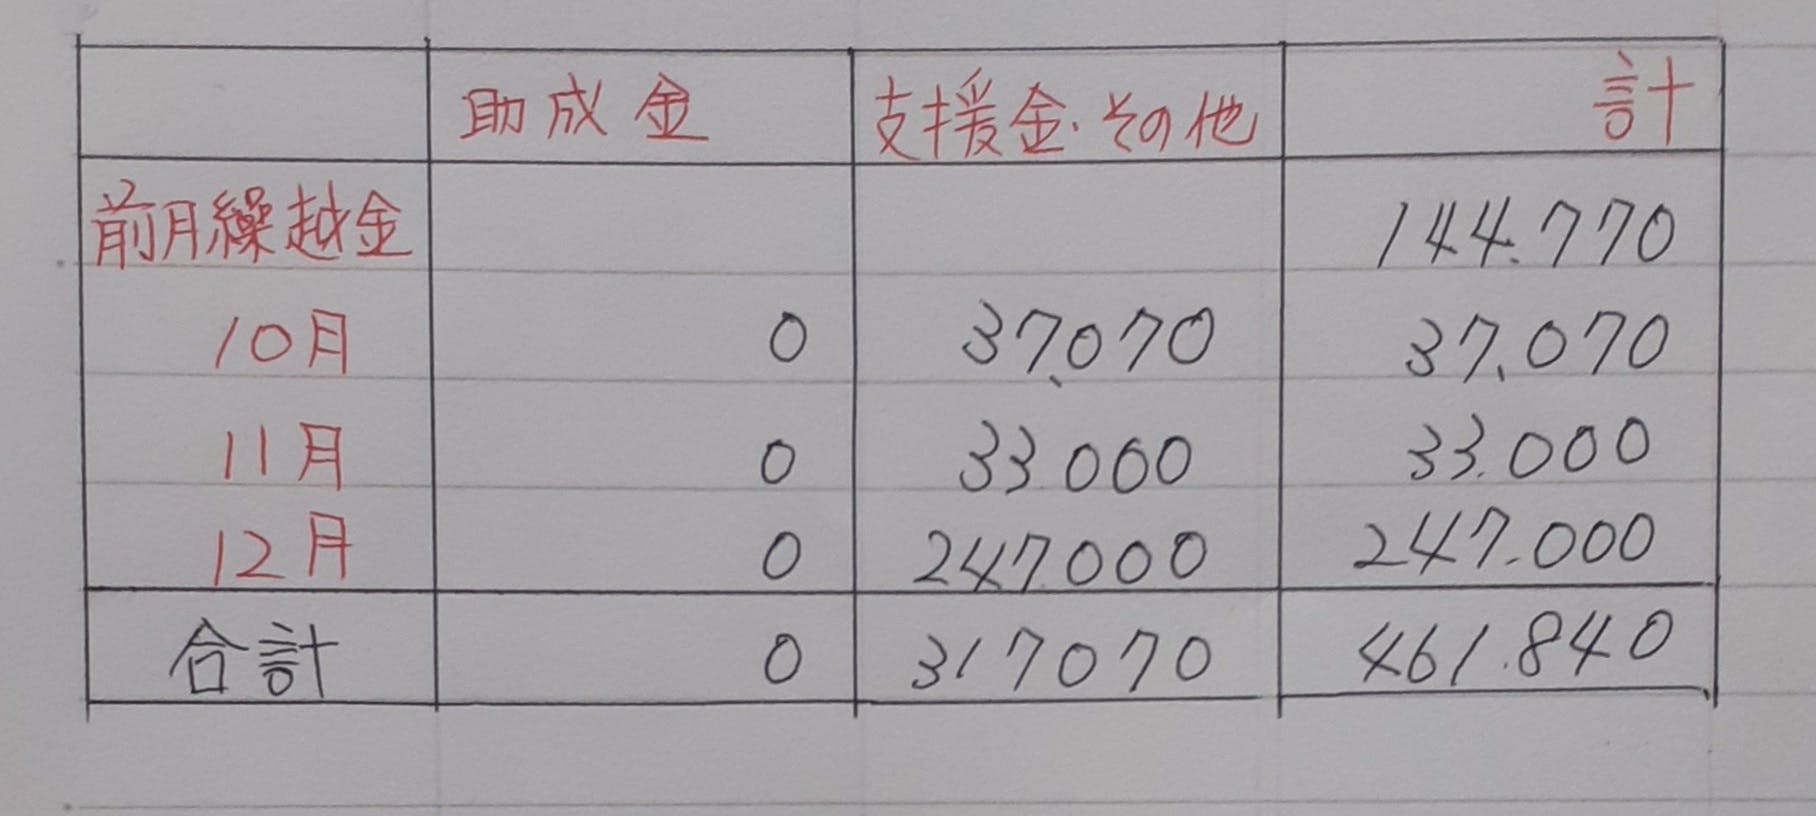 助成金 支援金・その他 計
前月繰越金 144.770
10月 0 37.070 37.070
11月 0 33.000 33.000
12月 0 247.000 247.000
合計 0 317070 461.840